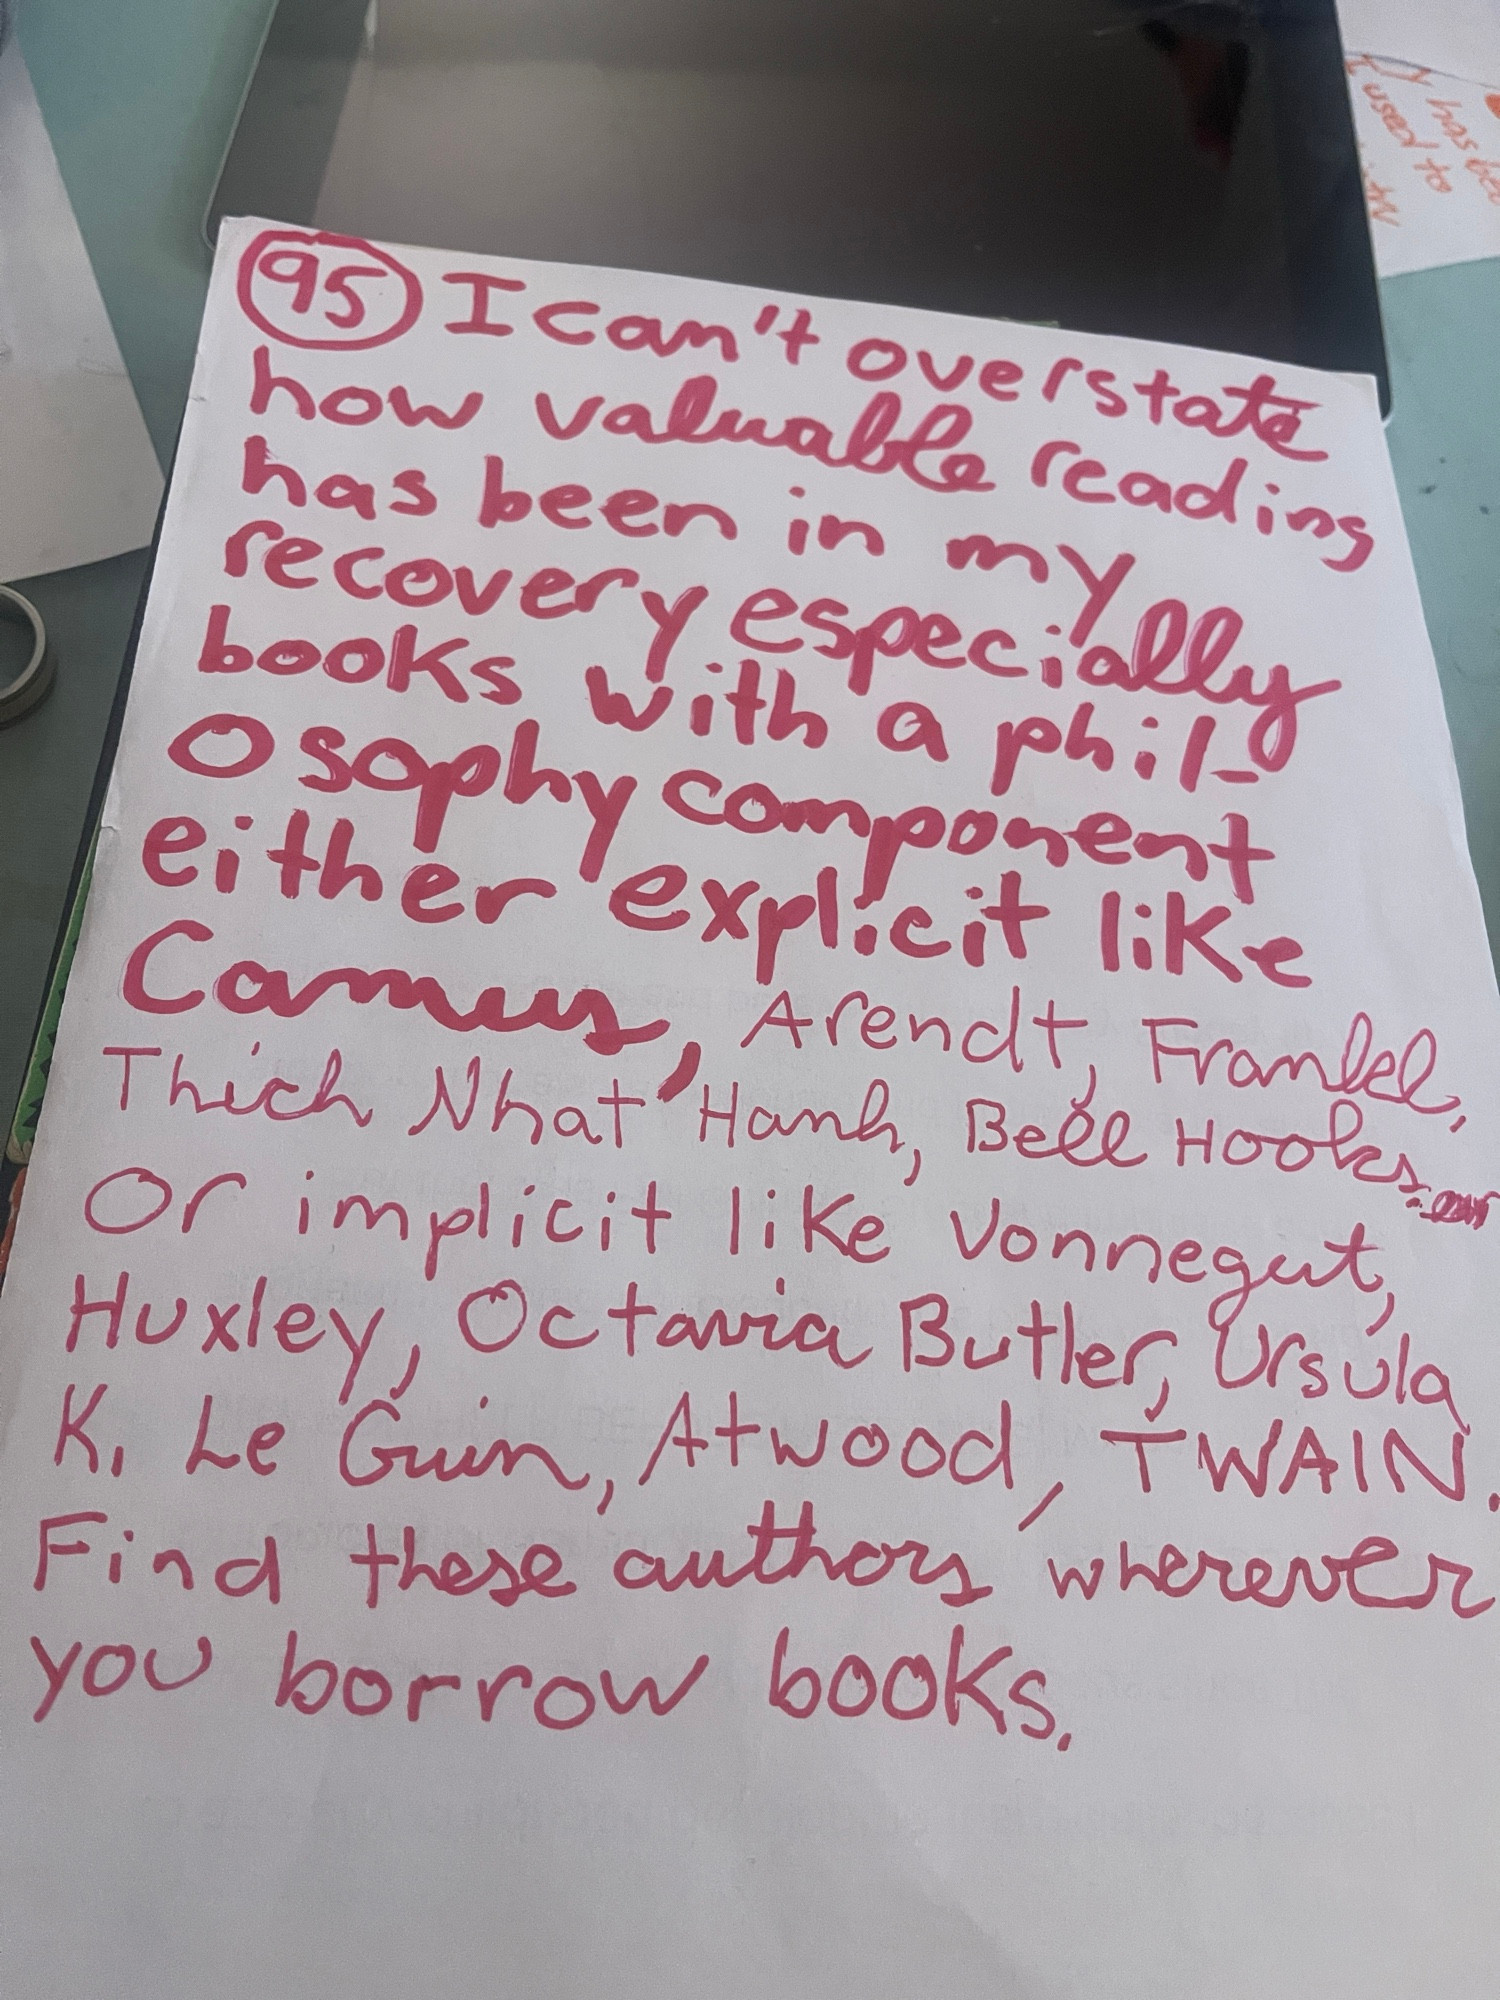 95 I can't overstate
how valuable reading
has been in my
recovery especially
books with a phil-
osophy component
either explicit like
Camus, Arendt, Frankel,
Thich Nhat Hanh, Bell Hooks.
Or implicit like Vonnegut,
Huxley, Octavia Butler, Ursula
K. Le Guin, Atwood, TWAIN.
Find these authors wherever
you borrow books.
has bee
I used to